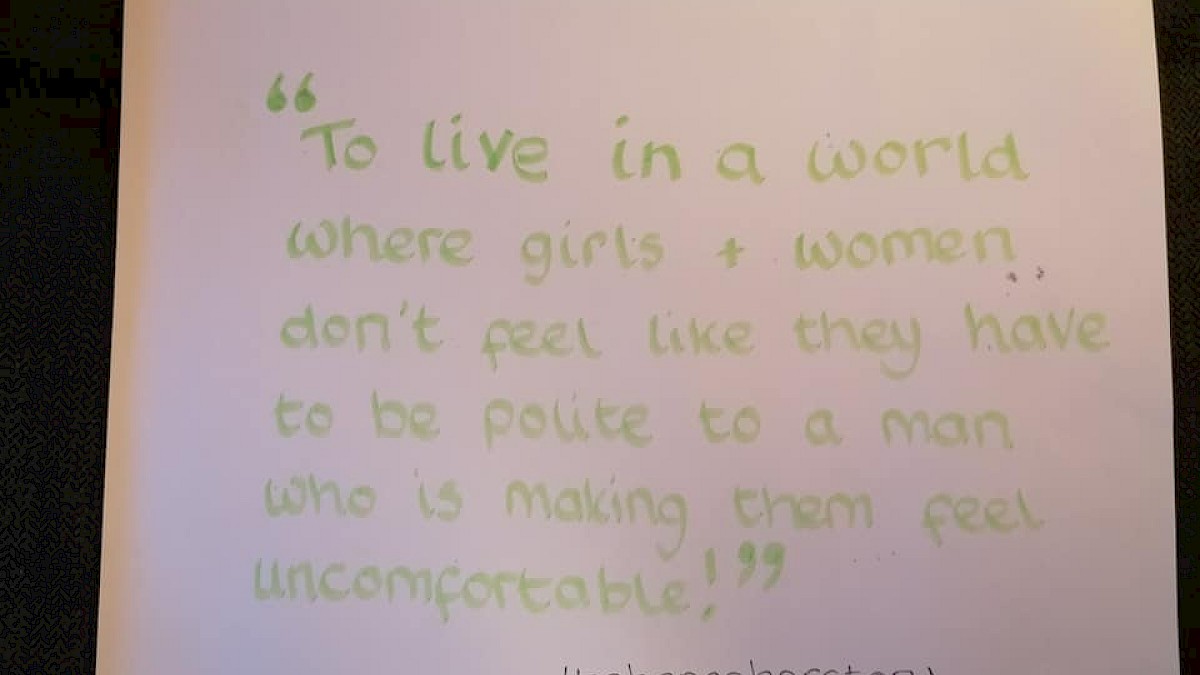 “To live in a world
where girls + women
don't feel like they have
to be polite to a man
who is making them feel
uncomfortable!”